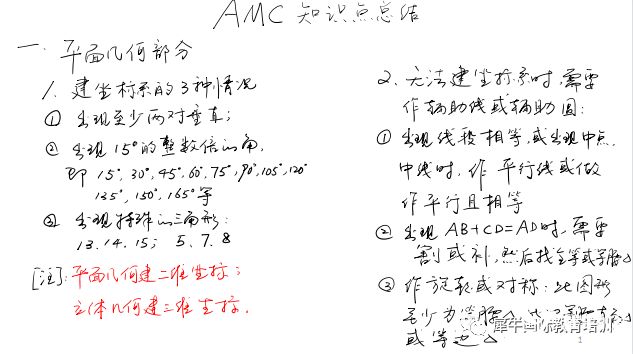 AMC 知识点总结
一、平面几何部分
1. 建坐标系的3种情况
① 出现至少两对垂直；
② 出现15°的整数倍的角,
即 15°, 30°, 45°, 60°, 75°, 90°, 105°, 120°
135°, 150°, 165°等
③ 出现特殊的三角形：
13.14.15； 5、7、8
[注]：平面几何建二维坐标；
立体几何建三维坐标.
2. 无法建坐标系时，需要
作辅助线或辅助圆：
① 出现线段相等，或出现中点.
中线时，作平行线或做
作平行且相等
② 出现 AB+CD=AD时，需要
割或补，然后找全等或等腰△
③ 作旋转或对称：此图形
至少为等腰△
或等边△
犀牛国际教育培训
1